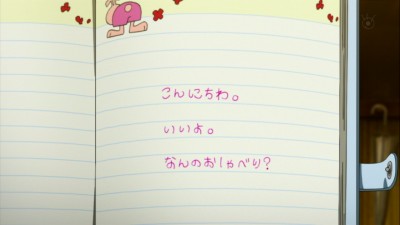 こんにちわ。
いいよ。
なんのおしゃべり?